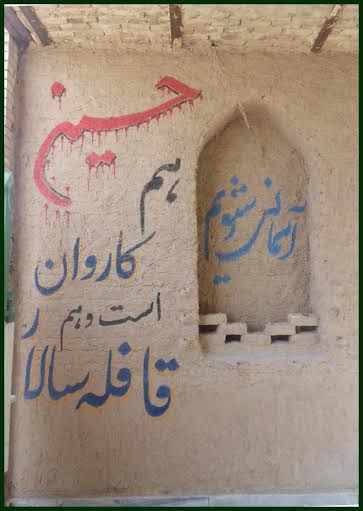 حسین
هم
کاروان
است و هم
قافله سالار
آسمانی شویم